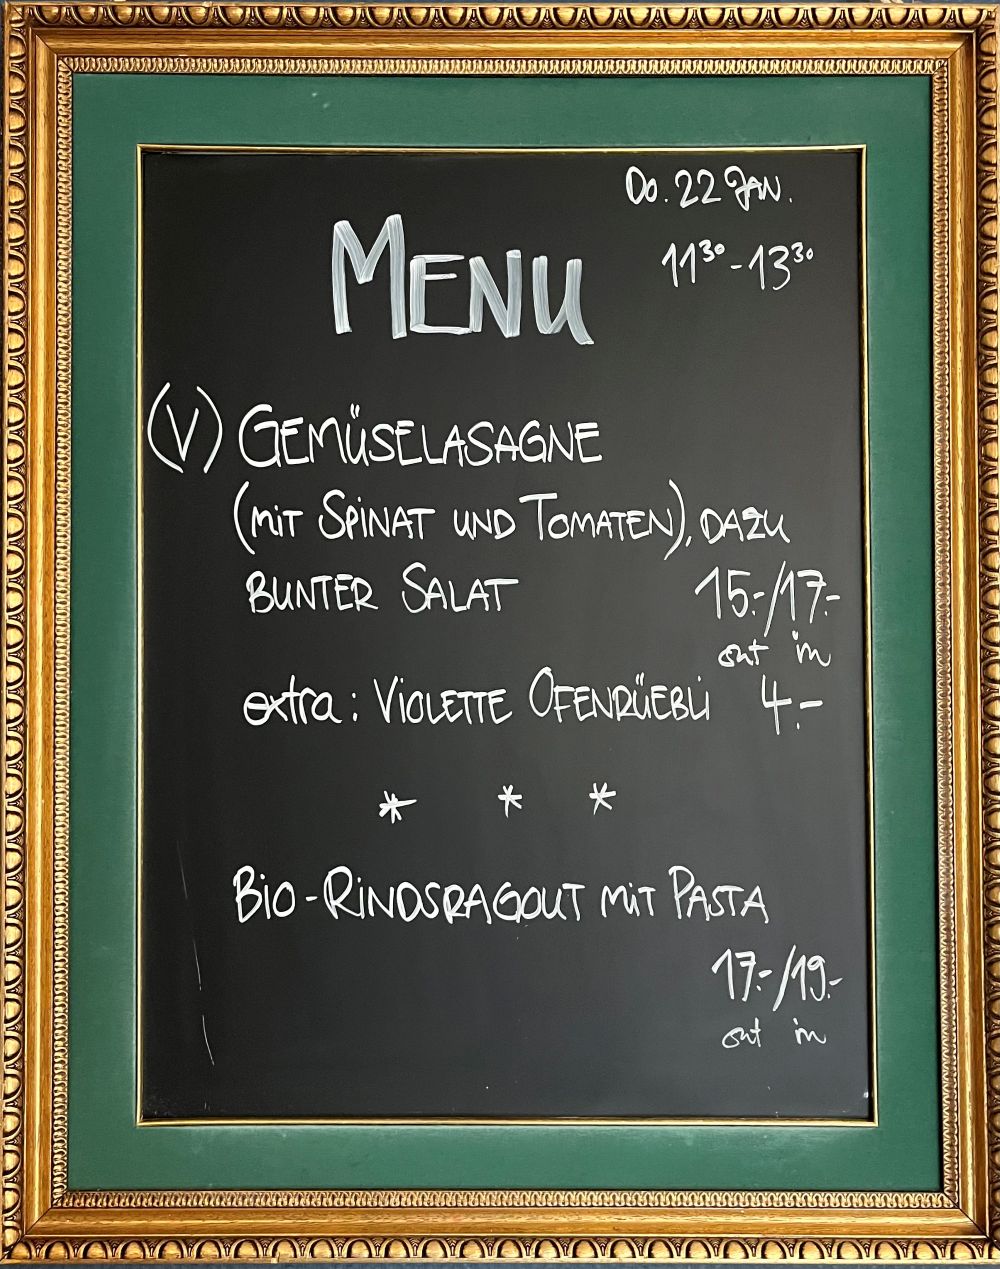 Do. 22 JAN.
11³⁰-13³⁰
MENU
(V) GEMÜSELASAGNE
(MIT SPINAT UND TOMATEN), DAZU
BUNTER SALAT 15.-/17.-
out in
extra: VIOLETTE OFENRÜEBLI 4.-
* * *
BIO-RINDSRAGOUT MIT PASTA
17.-/19.-
out in